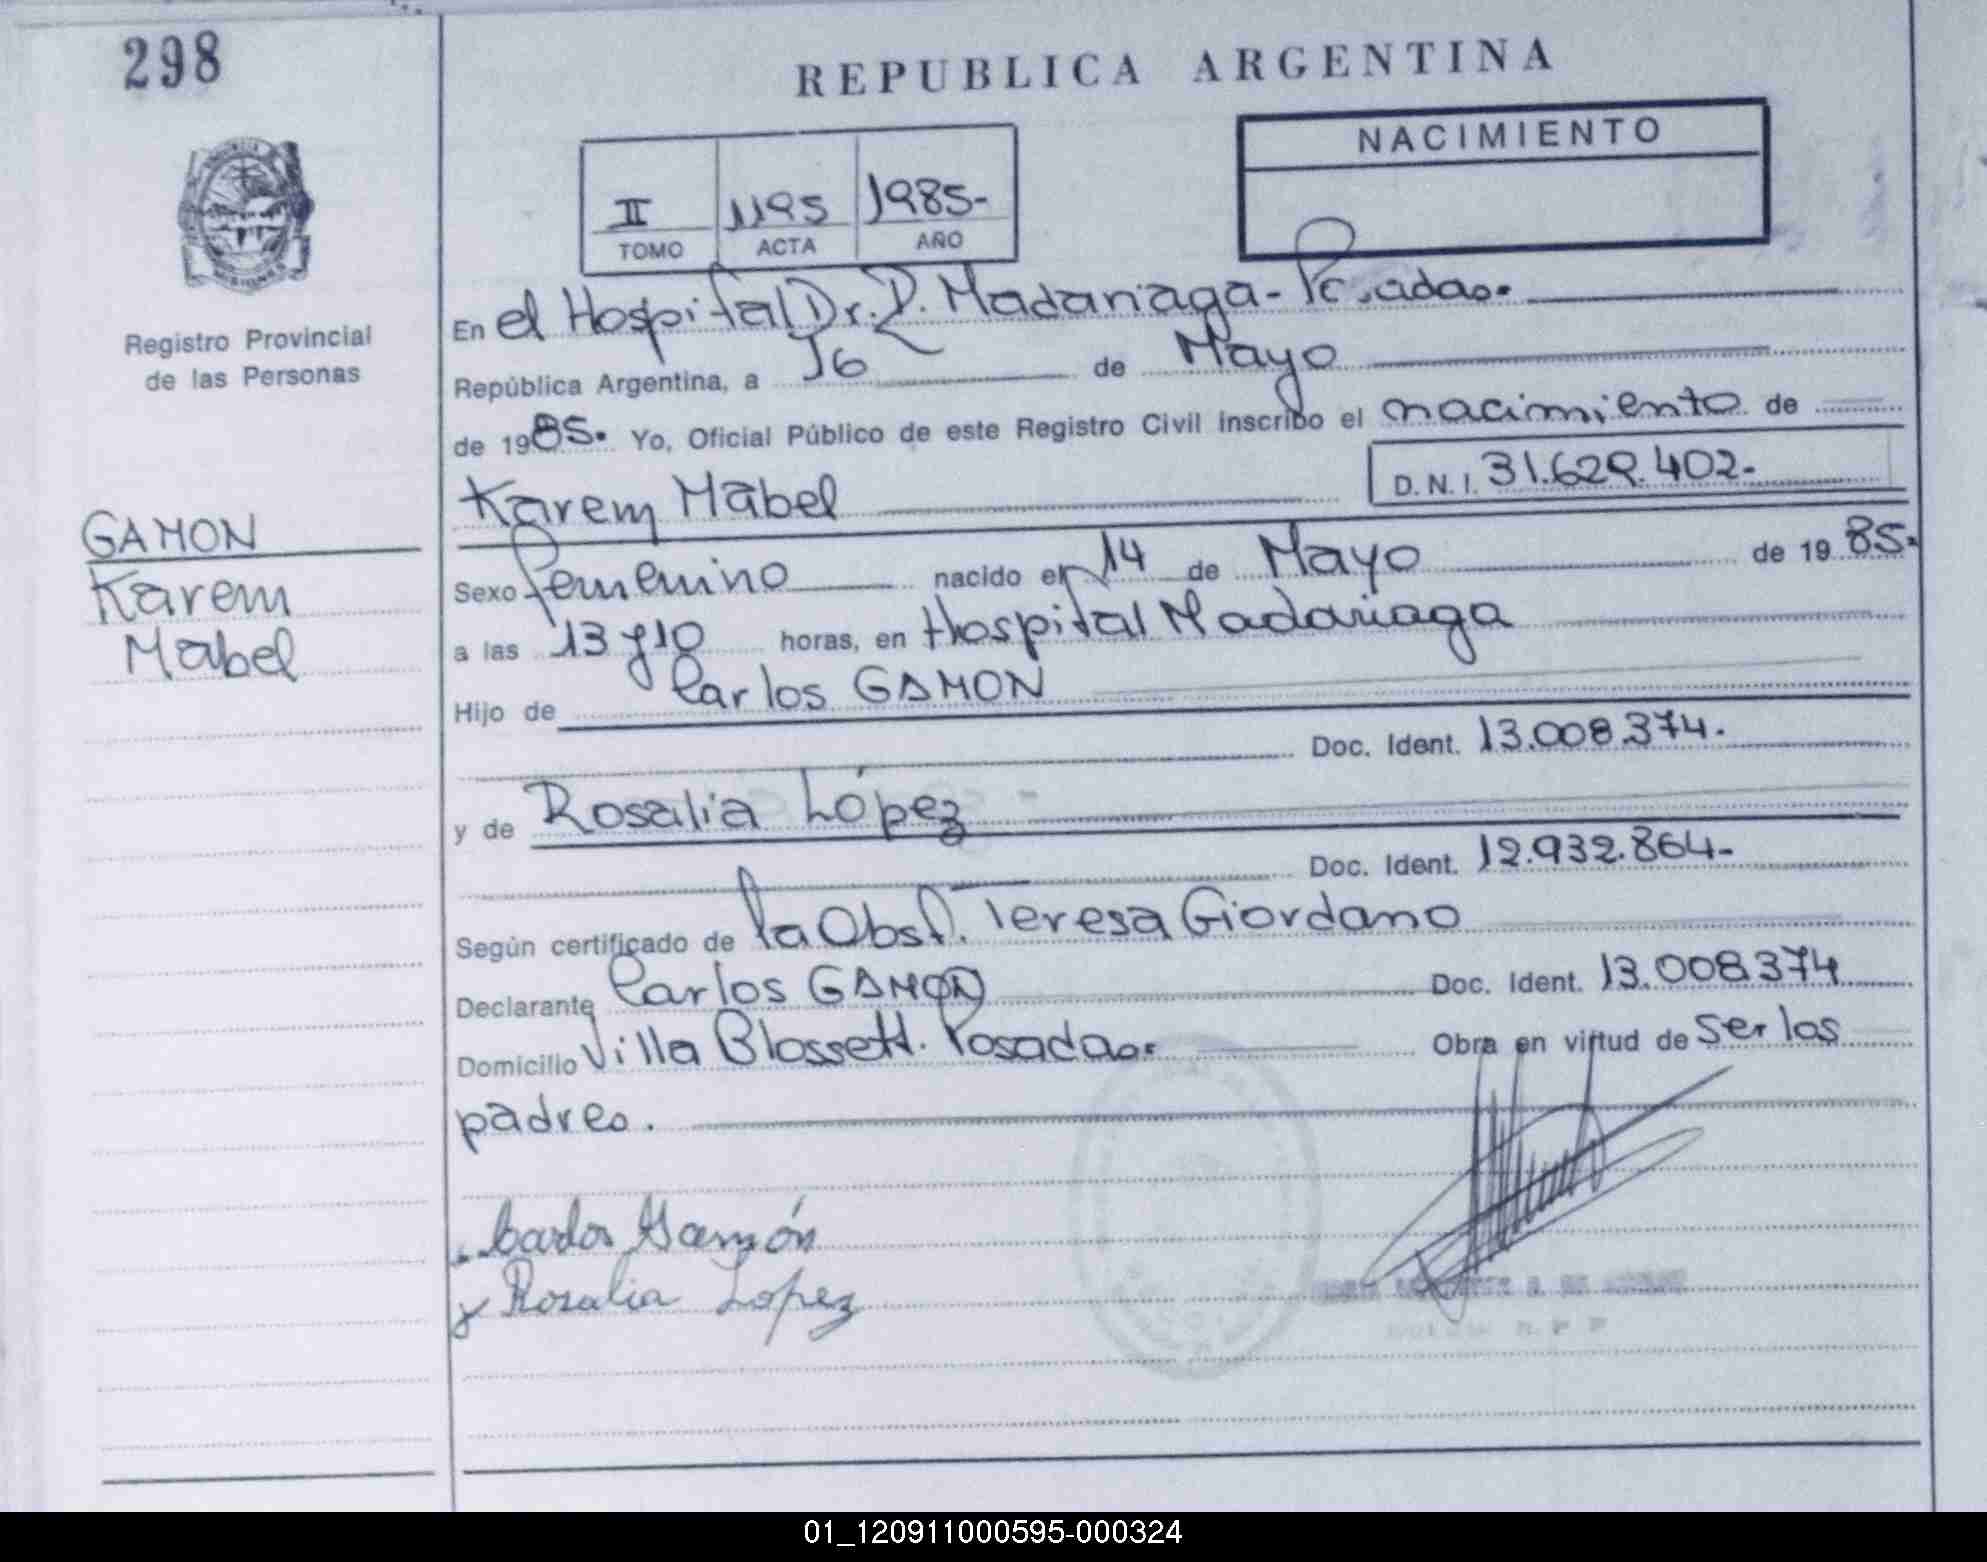 298
REPUBLICA ARGENTINA
NACIMIENTO
II 1195 1985-
TOMO ACTA AÑO
Registro Provincial
de las Personas
GAMON
Karem
Mabel
En el Hospital Dr. R. Madariaga - Posadas.
República Argentina, a 16 de Mayo
de 1985. Yo, Oficial Público de este Registro Civil inscribo el nacimiento de
Karem Mabel D.N.I. 31.629.402-
Sexo femenino nacido el 14 de Mayo de 1985.
a las 13 y 10 horas, en Hospital Madariaga
Hijo de Carlos GAMON
Doc. Ident. 13.008.374.
y de Rosalia López
Doc. Ident. 12.932.864-
Según certificado de la Obst. Teresa Giordano
Declarante Carlos GAMON Doc. Ident. 13.008.374
Domicilio Villa Blossett. Posadas. Obra en virtud de ser los
padres.
Carlos Gamón
Rosalia Lopez
01_120911000595-000324